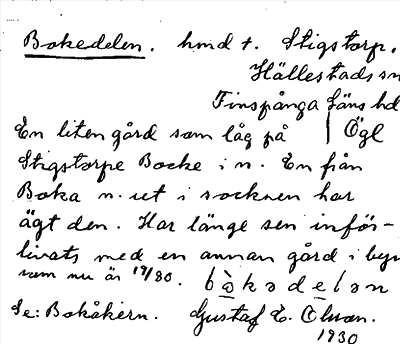 Bokedelen. hmd t. Stigstorp,
Hällestads sn
Finspånga läns hd
En liten gård som låg på | Ögl
Stigstorps Bocke i n. En från
Boka n. ut i socknen har
ägt den. Har länge sen införlivats med en annan gård i byn
som nu är 19/80. bòkədelən
Se: Bokåkern. Gustaf E. Olson.
1930